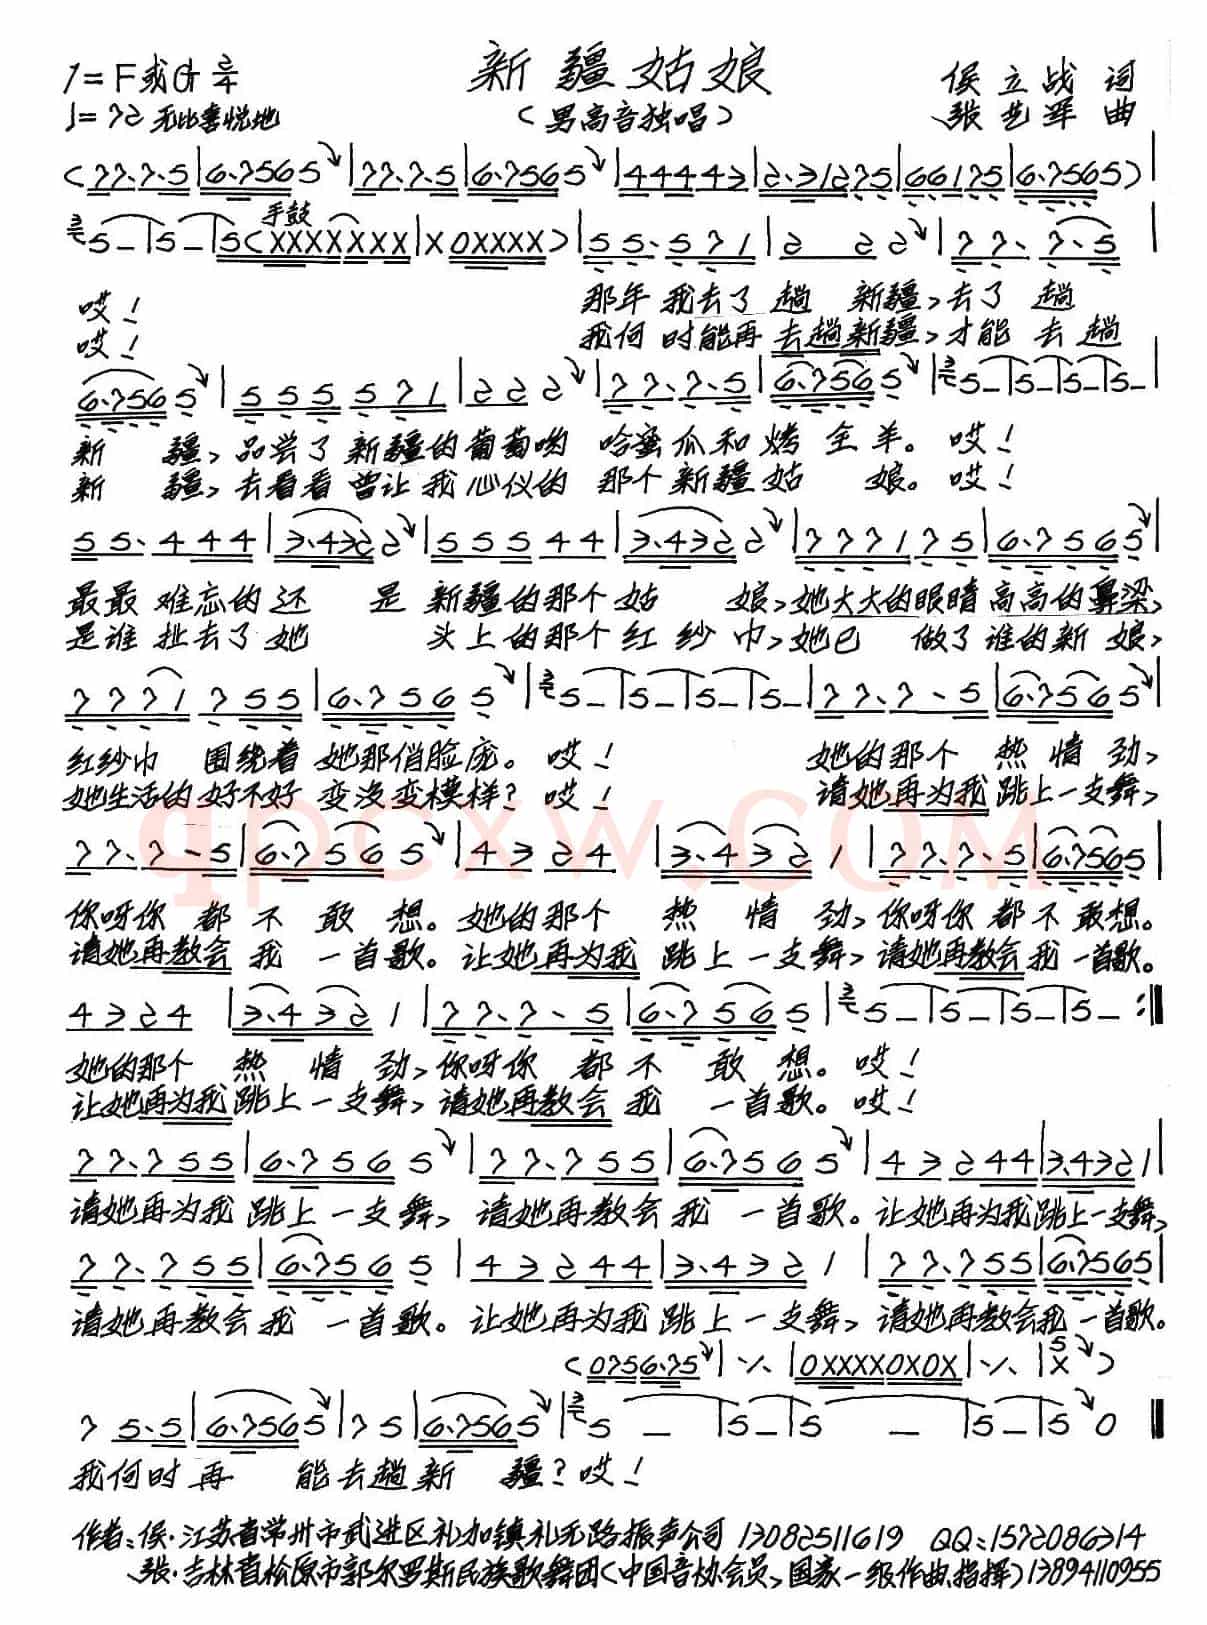 新疆姑娘
1=F或G 3/4
侯立战 词
♩=72 无比喜悦地
（男高音独唱）
张艺军 曲
(77.7.5|6.7565|77.7.5|6.7565|44443|2.31275|66175|6.7565)|
5–|5–|5(XXXXXXX|X0XXXX)|55.571|2 22|77.7.5|
手鼓
哎！ 那年我去了趟 新疆，去了 趟
哎！ 我何时能再去趟新疆，才能 去 趟
6.7565|555571|222|77.7.5|6.7565|5–|5–|5–|5–|
新 疆，品尝了新疆的葡萄哟 哈蜜瓜和烤全羊。哎！
新 疆，去看看曾让我心仪的 那个新疆姑 娘。哎！
55.444|3.4322|55544|3.4322|777175|6.7565|
最最难忘的还 是 新疆的那个姑 娘，她大大的眼睛高高的鼻梁，
是谁扯去了她 头上的那个红纱巾，她已 做了谁的新娘，
7771755|6.7565|5–|5–|5–|5–|77.7.5|6.7565|
红纱巾 围绕着她那俏脸庞。哎！ 她的那个 热情劲，
她生活的好不好 变没变模样？哎！ 请她再为我跳上一支舞，
77.7.5|6.7565|4324|3.4321|77.7.5|6.7565|
qpcxw.com
你呀你都不敢想。她的那个 热情劲，你呀你都不敢想。
请她再教会我 一首歌。让她再为我 跳上一支舞，请她再教会我一首歌。
4324|3.4321|77.7.5|6.7565|5–|5–|5–|5–:|
她的那个 热情劲，你呀你 都不敢想。哎！
让她再为我跳上一支舞，请她再教会我 一首歌。哎！
77.755|6.7565|77.755|6.7565|43244|3.4321|
请她再为我跳上一支舞，请她再教会我 一首歌。让她再为我跳上一支舞，
77.755|6.7565|43244|3.4321|77.755|6.7565|
请她再教会我 一首歌。让她再为我跳上一支舞，请她再教会我一首歌。
(0756.75|·/.|0XXXX0X0X|·/.|X)
7 5.5|6.7565|75|6.7565|5 –|5–|5 –|5–|5 0‖
我何时再 能去趟新 疆？哎！
作者：侯·江苏省常州市武进区礼加镇礼无路振声公司 13082511619 QQ：1572086314
张·吉林省松原市郭尔罗斯民族歌舞团（中国音协会员，国家一级作曲、指挥）13894110955